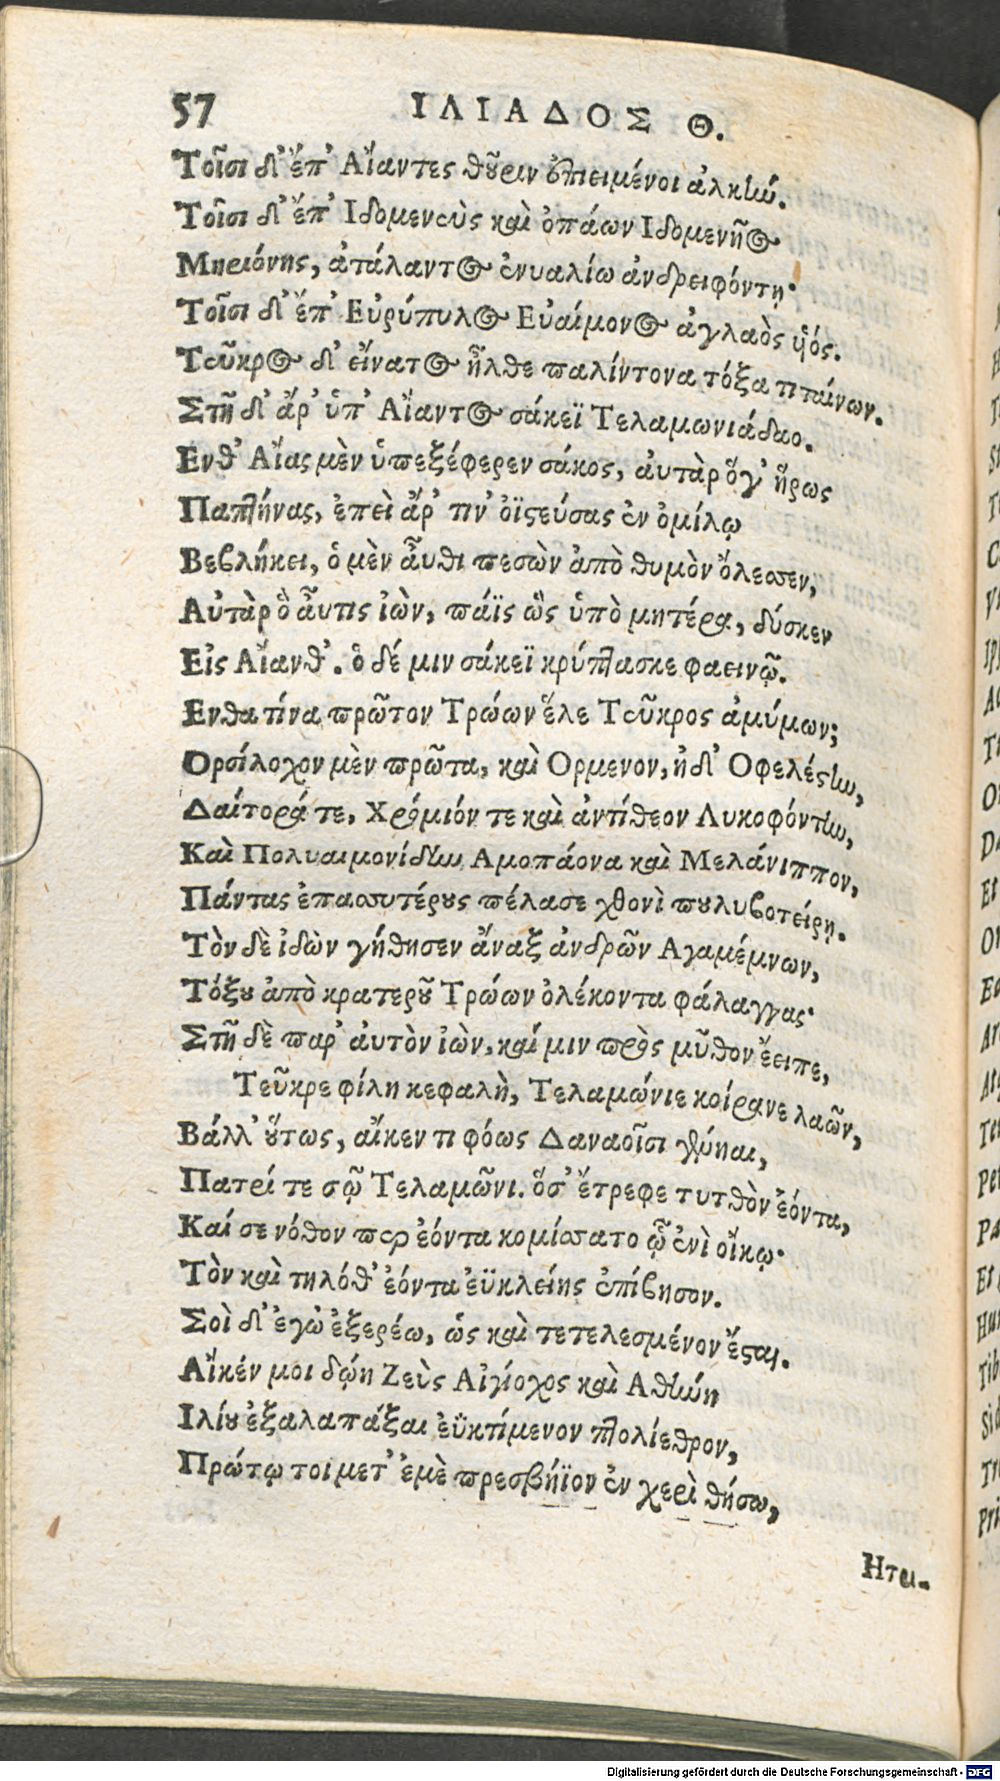 57 ΙΛΙΑΔΟΣ Θ.
Τοῖσι δ' ἔπ' Αἴαντες θοῦριν ἐπιειμένοι ἀλκήν.
Τοῖσι δ' ἔπ' Ιδομενεὺς καὶ ὀπάων Ιδομενῆος
Μηριόνης, ἀτάλαντος ἐνυαλίω ἀνδρειφόντῃ·
Τοῖσι δ' ἔπ' Εὐρύπυλος Εὐαίμονος ἀγλαὸς ὑιός.
Τεῦκρος δ' εἴνατος ἦλθε παλίντονα τόξα τιταίνων.
Στῆ δ' ἄρ' ὑπ' Αἴαντος σάκεϊ Τελαμωνιάδαο.
Ενθ' Αἴας μὲν ὑπεξέφερεν σάκος, ἀυτὰρ ὅγ' ἥρως
Παπτήνας, ἐπεὶ ἄρ' τιν' ὀϊστεύσας ἐν ὁμίλῳ
Βεβλήκει, ὁ μὲν ἆυθι πεσὼν ἀπὸ θυμὸν ὄλεσσεν,
Αὐτὰρ ὃ ἆυτις ἰὼν, πάϊς ὣς ὑπὸ μητέρα, δύσκεν
Εἰς Αἴανθ'. ὁ δέ μιν σάκεϊ κρύπτασκε φαεινῷ.
Ενθα τίνα πρῶτον Τρώων ἕλε Τεῦκρος ἀμύμων;
Ορσίλοχον μὲν πρῶτα, καὶ Ορμενον, ἠδ' Οφελέστην,
Δαίτορά τε, Χρόμιόν τε καὶ ἀντίθεον Λυκοφόντην,
Καὶ Πολυαιμονίδην Αμοπάονα καὶ Μελάνιππον,
Πάντας ἐπασσυτέρους πέλασε χθονὶ πουλυβοτείρῃ.
Τὸν δὲ ἰδὼν γήθησεν ἄναξ ἀνδρῶν Αγαμέμνων,
Τόξου ἀπὸ κρατεροῦ Τρώων ὀλέκοντα φάλαγγας·
Στῆ δὲ παρ' ἀυτὸν ἰὼν, καί μιν πρὸς μῦθον ἔειπε,
Τεῦκρε φίλη κεφαλὴ, Τελαμώνιε κοίρανε λαῶν,
Βάλλ' οὕτως, αἴκεν τι φόως Δαναοῖσι γένηαι,
Πατρί τε σῷ Τελαμῶνι. ὅσ' ἔτρεφε τυτθὸν ἐόντα,
Καί σε νόθον περ ἐόντα κομίσσατο ᾧ ἐνὶ οἴκῳ·
Τὸν καὶ τηλόθ' ἐόντα ἐϋκλείης ἐπίβησον.
Σοὶ δ' ἐγὼ ἐξερέω, ὡς καὶ τετελεσμένον ἔσται.
Αἴκέν μοι δῴη Ζεὺς Αἰγίοχος καὶ Αθήνη
Ιλίου ἐξαλαπάξαι ἐϋκτίμενον πτολίεθρον,
Πρώτῳ τοι μετ' ἐμὲ πρεσβήϊον ἐν χερὶ θήσω,
Ητρι-
Digitalisierung gefördert durch die Deutsche Forschungsgemeinschaft - DFG